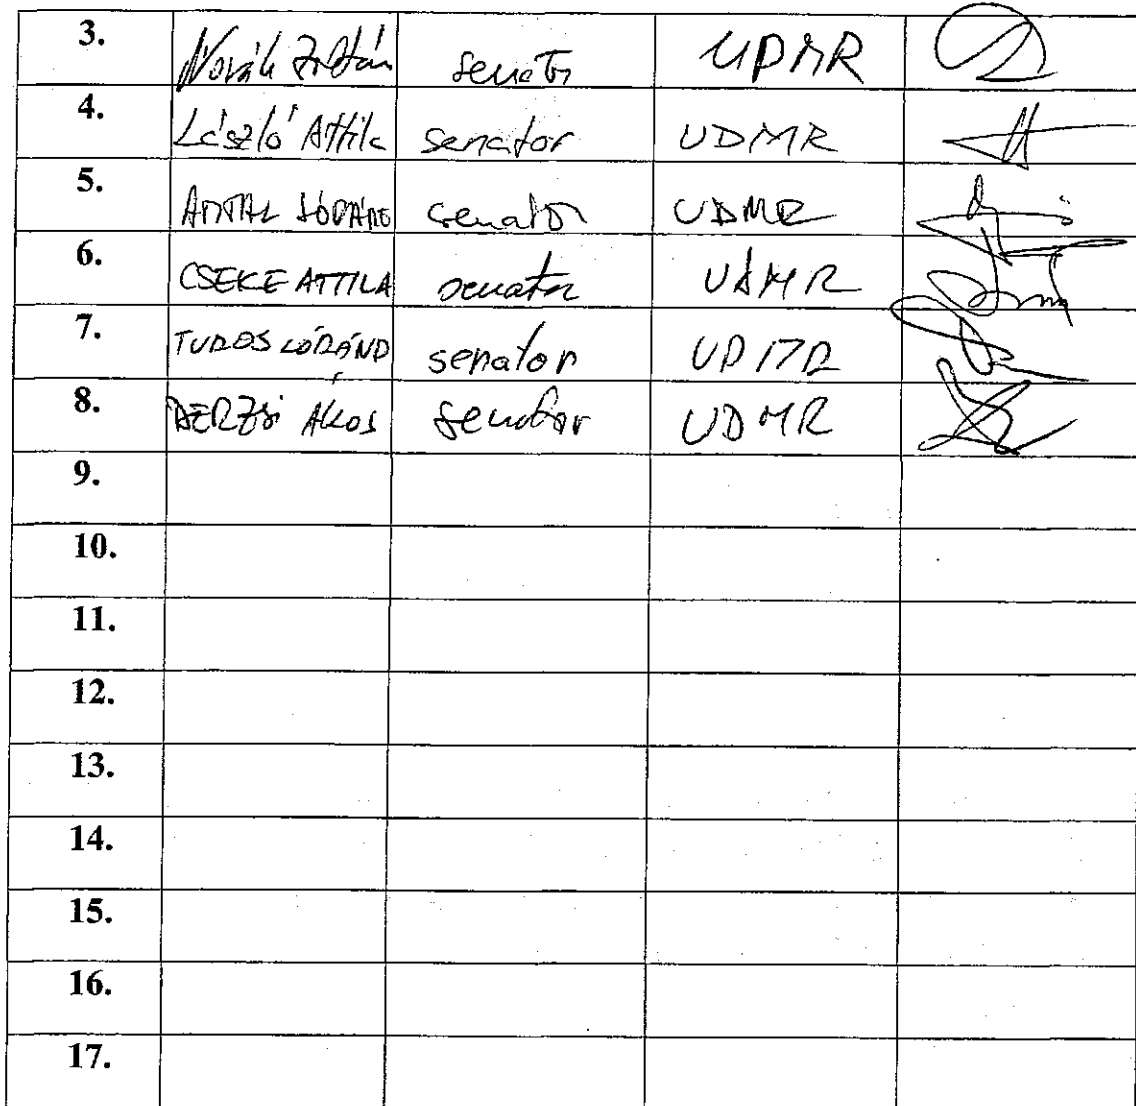 3. Novák Zoltán senator UDMR
4. László Attila senator UDMR
5. ANTAL LÓRÁNT senator UDMR
6. CSEKE ATTILA senator UDMR
7. TUROS LÓRÁND senator UDMR
8. DERZSI Ákos senator UDMR
9.
10.
11.
12.
13.
14.
15.
16.
17.